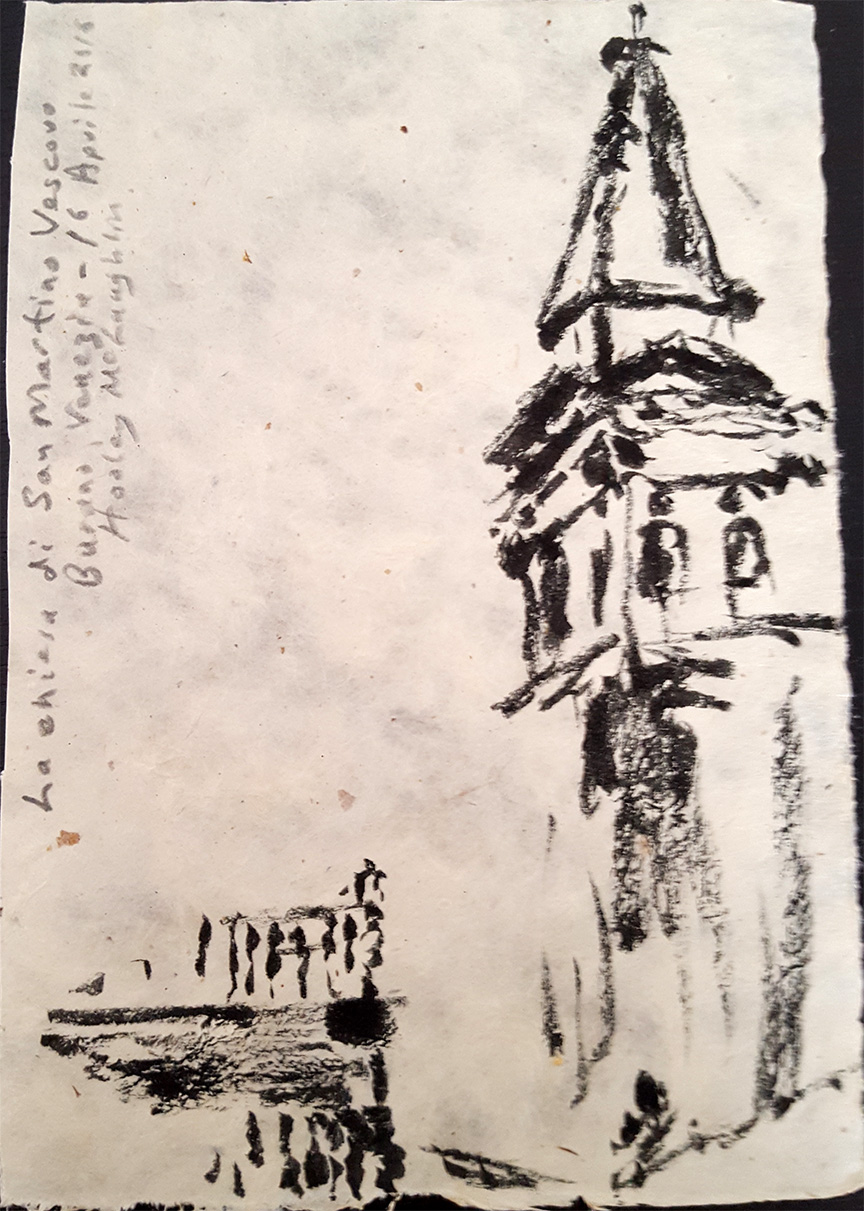 La chiesa di San Martino Vescovo
Burano, Venezia - 16 Aprile 2116
Hooley McLaughlin